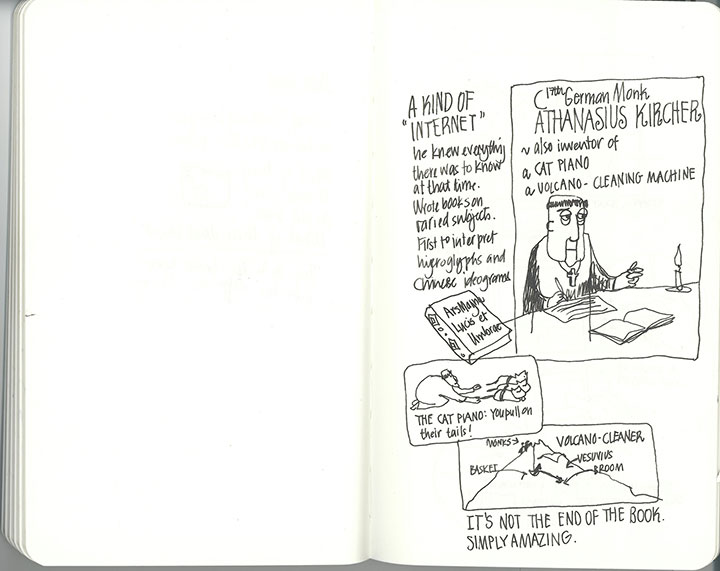 A KIND OF
"INTERNET"
he knew everything
there was to know
at that time.
Wrote books on
varied subjects.
First to interpret
hieroglyphs and
Chinese ideograms
C17th German Monk
ATHANASIUS KIRCHER
~ also inventor of
a CAT PIANO
a VOLCANO-CLEANING MACHINE
Ars Magna
Lucis et
Umbrae
THE CAT PIANO: You pull on
their tails!
MONKS→
VOLCANO-CLEANER
VESUVIUS
BASKET
BROOM
IT'S NOT THE END OF THE BOOK.
SIMPLY AMAZING.